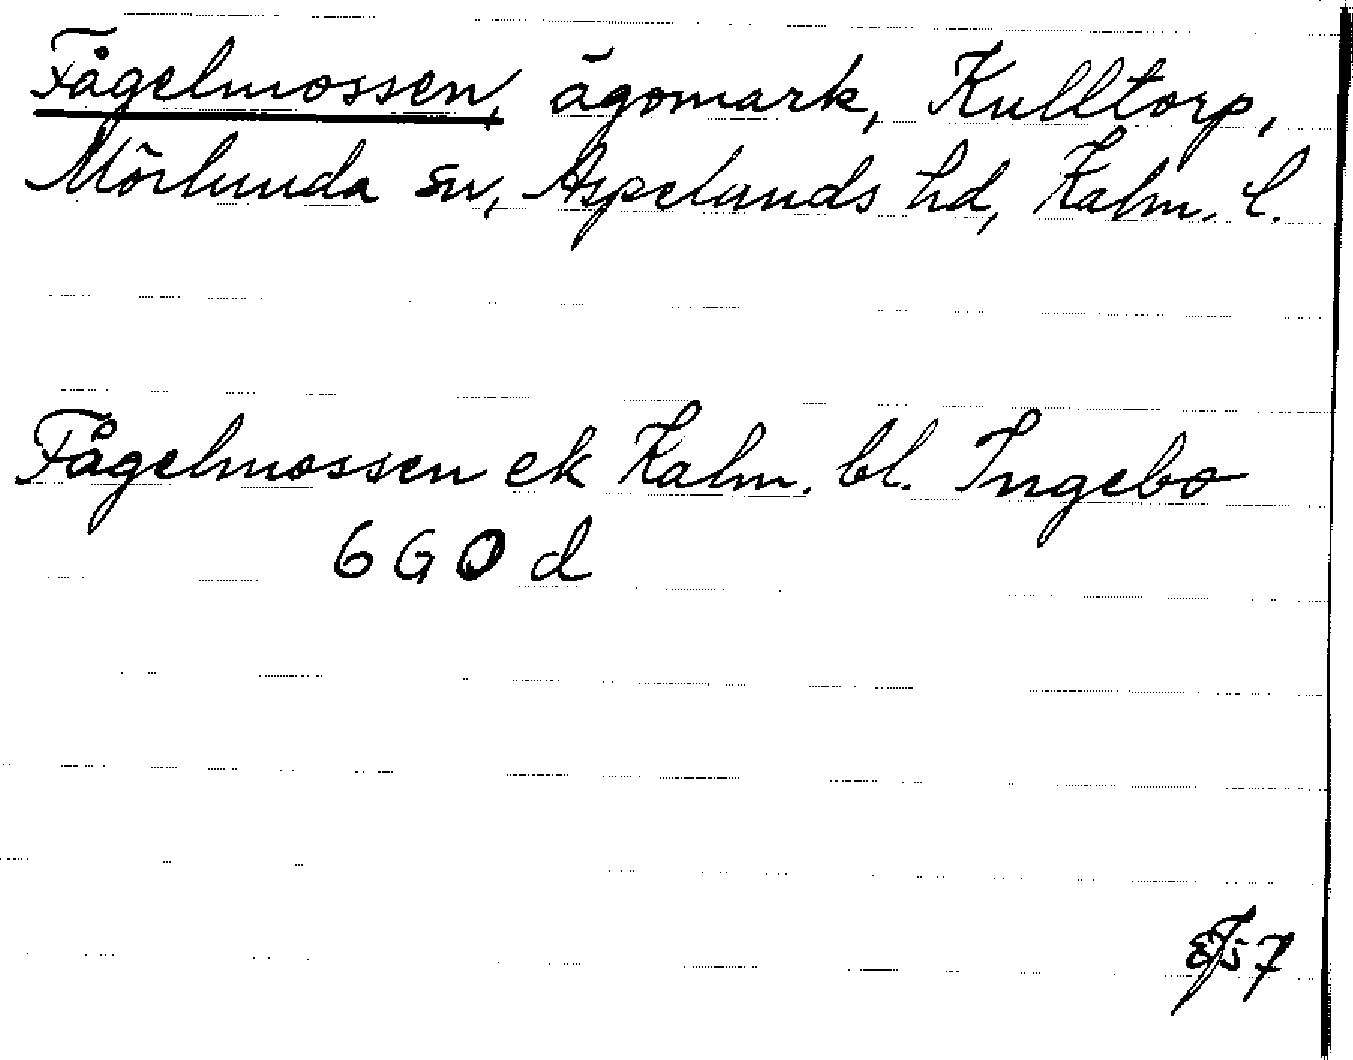 Fågelmossen, ägomark, Kulltorp,
Mörlunda sn, Aspelands hd, Kalm. l.
Fågelmossen ek Kalm. bl. Ingebo
6 G 0 d
57